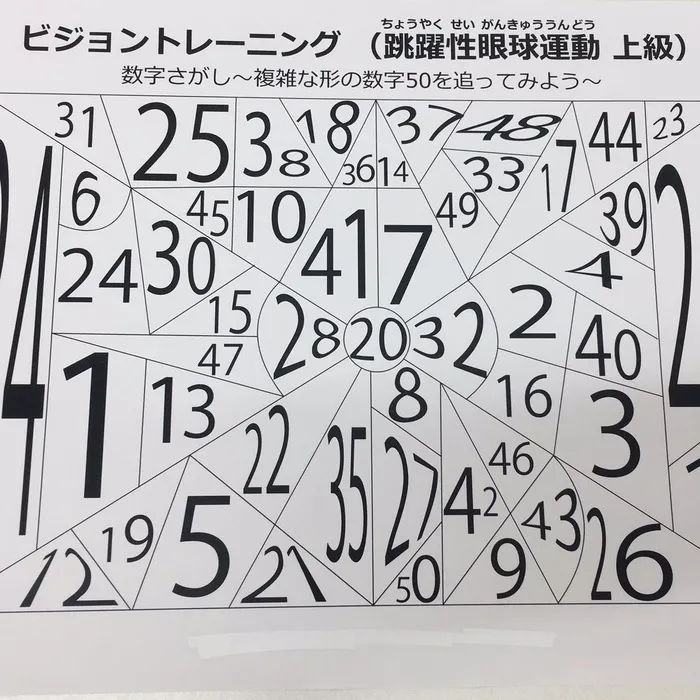 ちょうやく せい がんきゅううんどう
ビジョントレーニング （跳躍性眼球運動 上級）
数字さがし～複雑な形の数字50を追ってみよう～
31
25
38
18
36
14
37
48
33
17
44
23
6
45
10
49
39
24
30
41
7
4
15
28
20
32
2
40
47
1
13
8
16
3
22
35
27
42
46
19
5
43
26
12
21
50
9